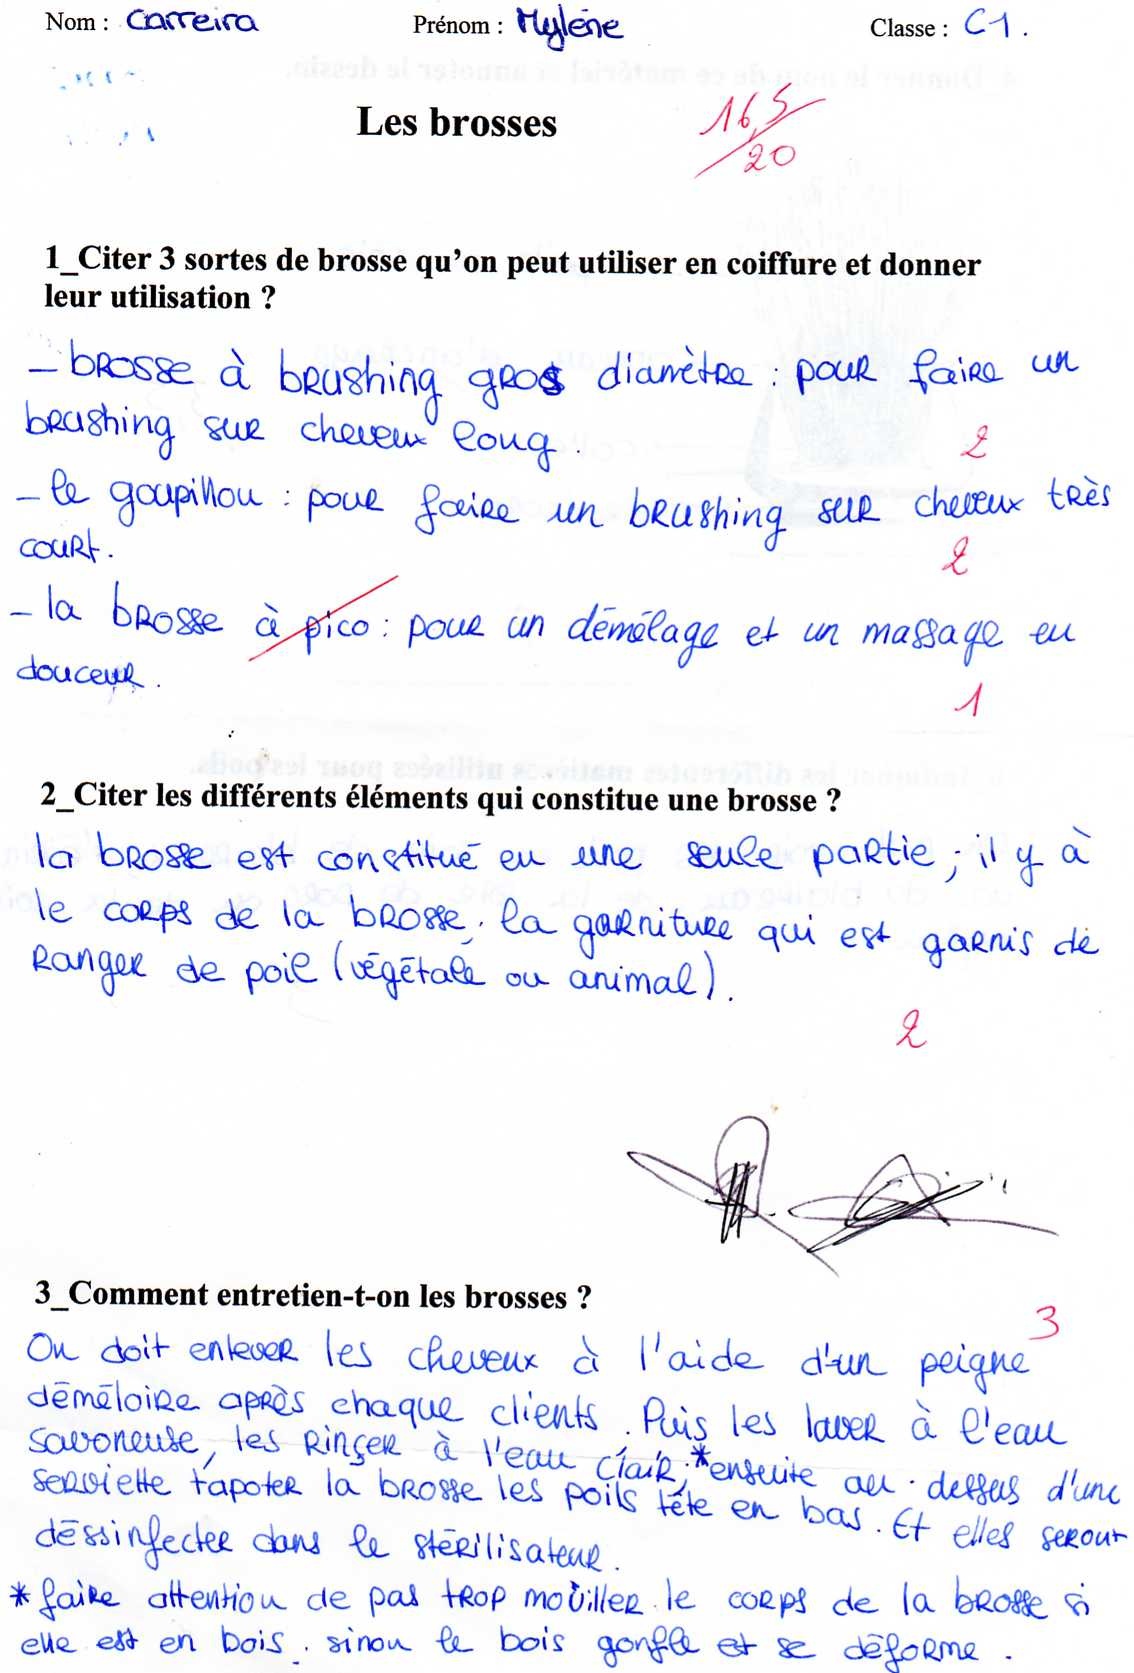 Nom : Carreira Prénom : Mylène Classe : C1.
Les brosses
16,5/20
1_Citer 3 sortes de brosse qu'on peut utiliser en coiffure et donner
leur utilisation ?
- brosse à brushing gros diamètre : pour faire un
brushing sur cheveux long.
2
- le goupillon : pour faire un brushing sur cheveux très
court.
2
- la brosse à pico : pour un démélage et un massage en
douceur.
1
2_Citer les différents éléments qui constitue une brosse ?
la brosse est constitué en une seule partie, il y à
le corps de la brosse. la garniture qui est garnis de
ranger de poil (végétale ou animal).
2
3_Comment entretien-t-on les brosses ?
3
On doit enlever les cheveux à l'aide d'un peigne
déméloire après chaque clients. Puis les laver à l'eau
savoneuse, les rinçer à l'eau clair,*ensuite au dessus d'une
serviette tapoter la brosse les poils tête en bas. Et elles seront
déssinfecter dans le stérilisateur.
* faire attention de pas trop mouiller le corps de la brosse si
elle est en bois. sinon le bois gonfle et se déforme.